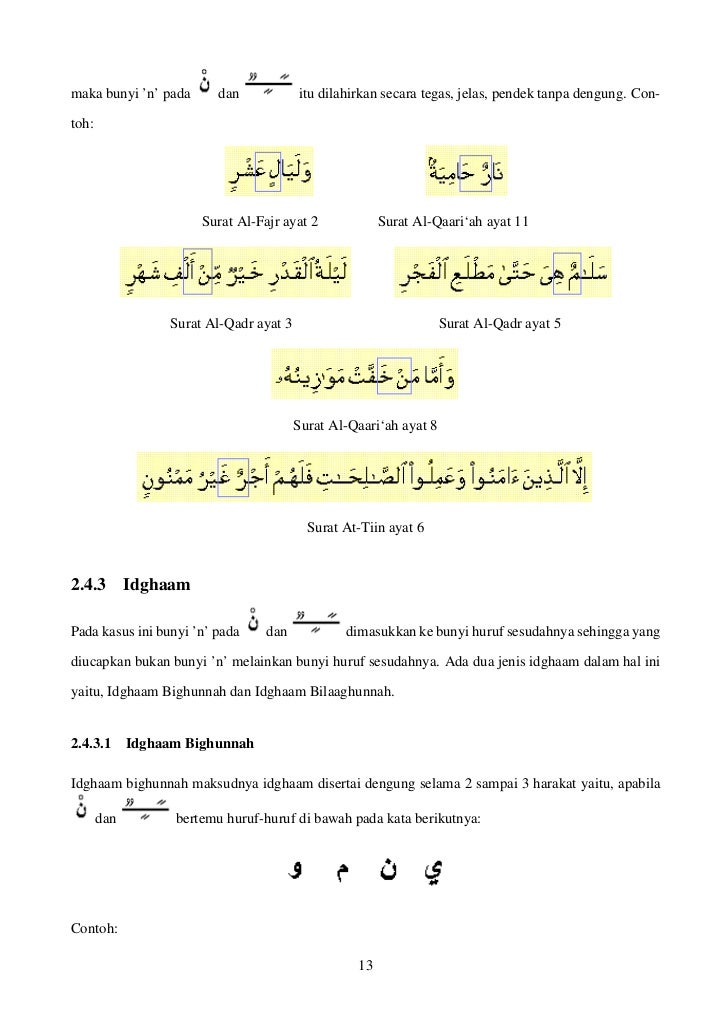 maka bunyi ’n’ pada نْ dan ـًـٍـٌ itu dilahirkan secara tegas, jelas, pendek tanpa dengung. Con-
toh:
وَلَيَالٍ عَشْرٍ نَارٌ حَامِيَةٌۢ
Surat Al-Fajr ayat 2 Surat Al-Qaari‘ah ayat 11
لَيْلَةُ ٱلْقَدْرِ خَيْرٌ مِّنْ أَلْفِ شَهْرٍ سَلَـٰمٌ هِىَ حَتَّىٰ مَطْلَعِ ٱلْفَجْرِ
Surat Al-Qadr ayat 3 Surat Al-Qadr ayat 5
وَأَمَّا مَنْ خَفَّتْ مَوَٰزِينُهُۥ
Surat Al-Qaari‘ah ayat 8
إِلَّا ٱلَّذِينَ ءَامَنُوا۟ وَعَمِلُوا۟ ٱلصَّـٰلِحَـٰتِ فَلَهُمْ أَجْرٌ غَيْرُ مَمْنُونٍ
Surat At-Tiin ayat 6
2.4.3 Idghaam
Pada kasus ini bunyi ’n’ pada نْ dan ـًـٍـٌ dimasukkan ke bunyi huruf sesudahnya sehingga yang
diucapkan bukan bunyi ’n’ melainkan bunyi huruf sesudahnya. Ada dua jenis idghaam dalam hal ini
yaitu, Idghaam Bighunnah dan Idghaam Bilaaghunnah.
2.4.3.1 Idghaam Bighunnah
Idghaam bighunnah maksudnya idghaam disertai dengung selama 2 sampai 3 harakat yaitu, apabila
نْ dan ـًـٍـٌ bertemu huruf-huruf di bawah pada kata berikutnya:
ي ن م و
Contoh:
13